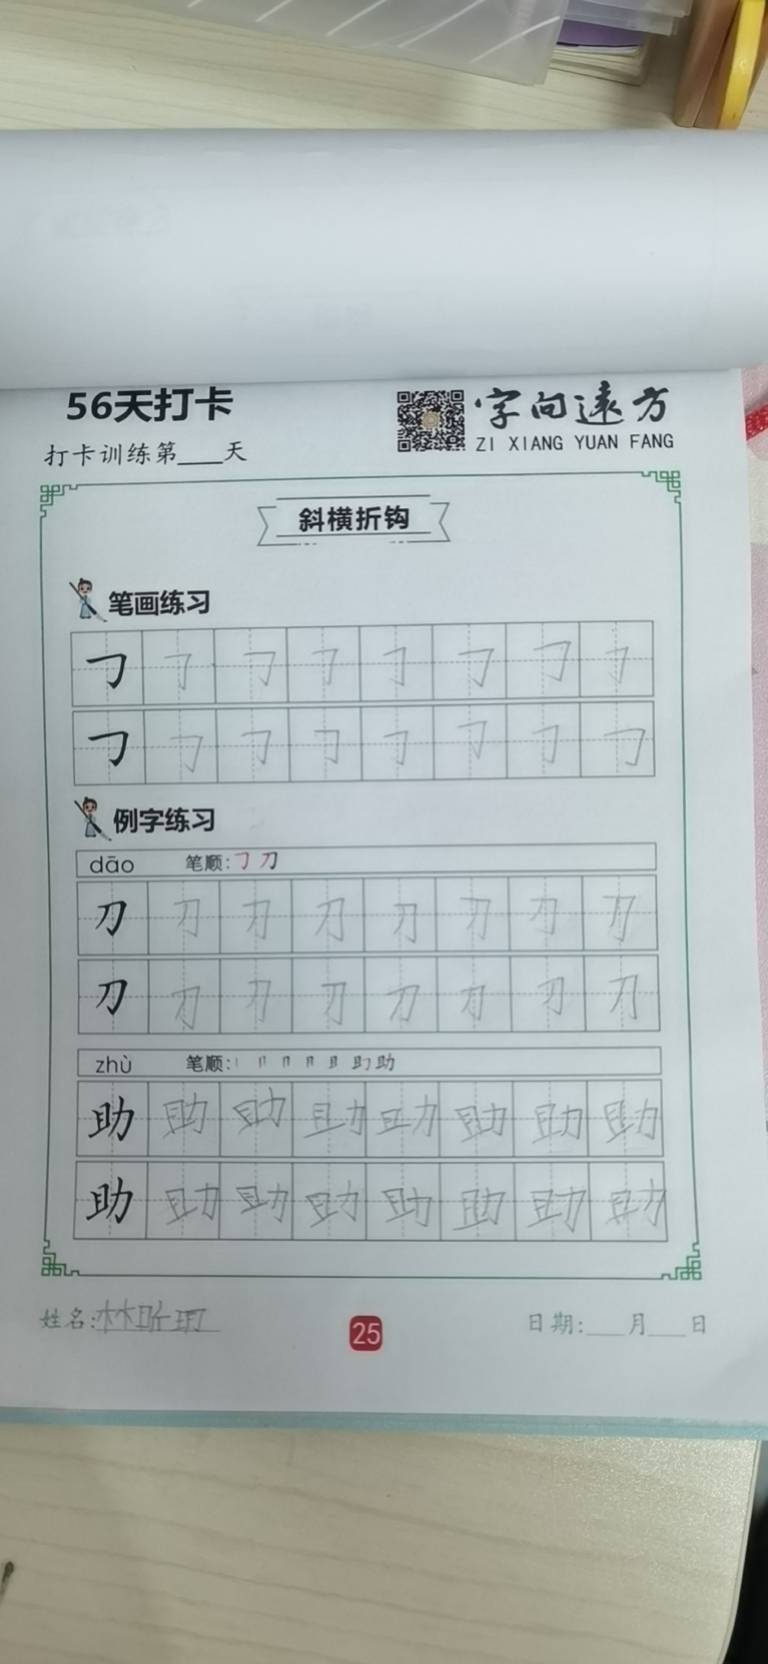 56天打卡
字向远方
打卡训练第____天
ZI XIANG YUAN FANG
斜横折钩
笔画练习
𠃌 𠃌 𠃌 𠃌 𠃌 𠃌 𠃌 𠃌
𠃌 𠃌 𠃌 𠃌 𠃌 𠃌 𠃌 𠃌
例字练习
dāo 笔顺:𠃌刀
刀 刀 刀 刀 刀 刀 刀 刀
刀 刀 刀 刀 刀 刀 刀 刀
zhù 笔顺:
助 助 助 助 助 助 助 助
助 助 助 助 助 助 助 助
姓名:林昕玥
25
日期:___月___日